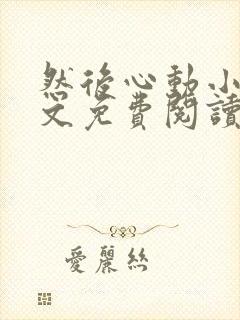 然後心動小
文免費閱讀
愛麗絲